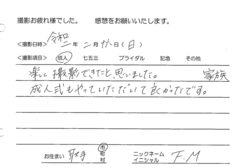 撮影お疲れ様でした。 感想をお願いいたします。
<撮影日時> 令和二年二月 日(日)
<撮影項目> 成人 七五三 ブライダル 記念 その他
楽しく撮影できたと思いました。 家族
成人式もやっていただいて良かったです。
お住まい 取手 市 町 村 ニックネーム イニシャル F.M